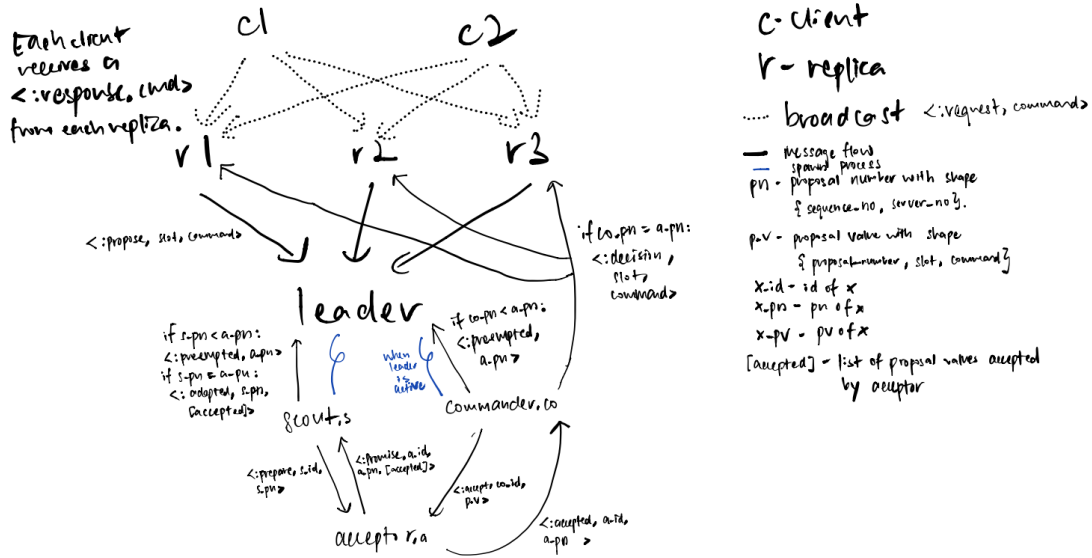 Each client
receives a
<:response, cmd>
from each replica.
c1
c2
r1
r2
r3
<:propose, slot, command>
if co.pn = a.pn:
<:decision,
slot,
command>
leader
if s.pn < a.pn:
<:preempted, a.pn>
if s.pn = a.pn:
<:adopted, s.pn,
[accepted]>
when
leader
is
active
if co.pn < a.pn:
<:preempted,
a.pn>
scout, s
commander, co
<:prepare, s_id,
s.pn>
<:promise, a_id,
a.pn, [accepted]>
<:accept, co_id,
p.v>
<:accepted, a_id,
a.pn>
acceptor, a
c - client
r - replica
broadcast <:request, command>
message flow
spawn process
pn - proposal number with shape
{sequence_no, server_no}.
p.v - proposal value with shape
{proposal_number, slot, command}
x_id - id of x
x_pn - pn of x
x_pv - pv of x
[accepted] - list of proposal values accepted
by acceptor